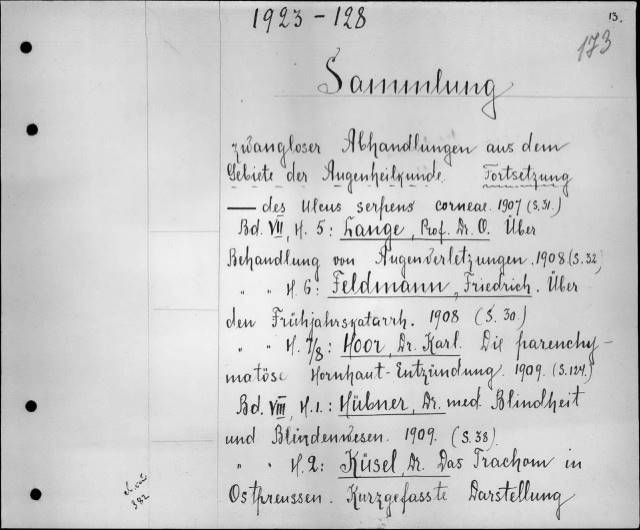 1923-128
13.
173
Sammlung
zwangloser Abhandlungen aus dem
Gebiete der Augenheilkunde. Fortsetzung
— des Ulcus serpens corneae. 1907 (S. 31.)
Bd. VII, H. 5: Lange, Prof. Dr. O. Über
Behandlung von Augenverletzungen. 1908 (S. 32)
" " H 6: Feldmann, Friedrich. Über
den Frühjahrskatarrh. 1908 (S. 30.)
" " H. 7/8: Hoor, Dr. Karl. Die parenchy-
matöse Hornhaut-Entzündung. 1909. (S. 124.)
Bd. VIII, H. 1.: Hübner, Dr. med. Blindheit
und Blindenwesen. 1909. (S. 38.)
" " H. 2: Küsel, Dr. Das Trachom in
Ostpreussen. Kurzgefasste Darstellung
382